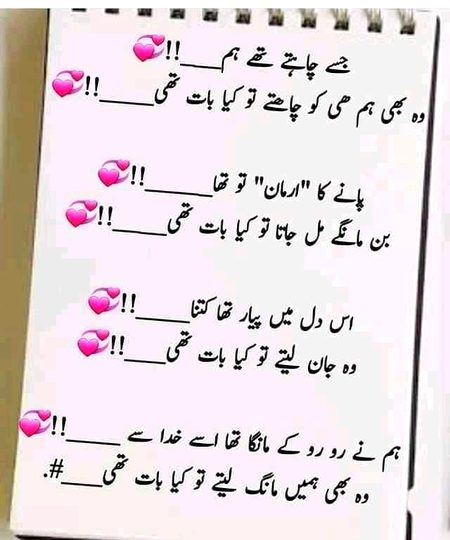 جسے چاہتے تھے ہم____!!💞
وہ بھی ہم ھی کو چاھتے تو کیا بات تھی____!!💞
پانے کا "ارمان" تو تھا____!!💞
بن مانگے مل جاتا تو کیا بات تھی____!!💞
اس دل میں پیار تھا کتنا____!!💞
وہ جان لیتے تو کیا بات تھی____!!💞
ہم نے رو رو کے مانگا تھا اسے خدا سے ____!!💞
وہ بھی ہمیں مانگ لیتے تو کیا بات تھی____#.